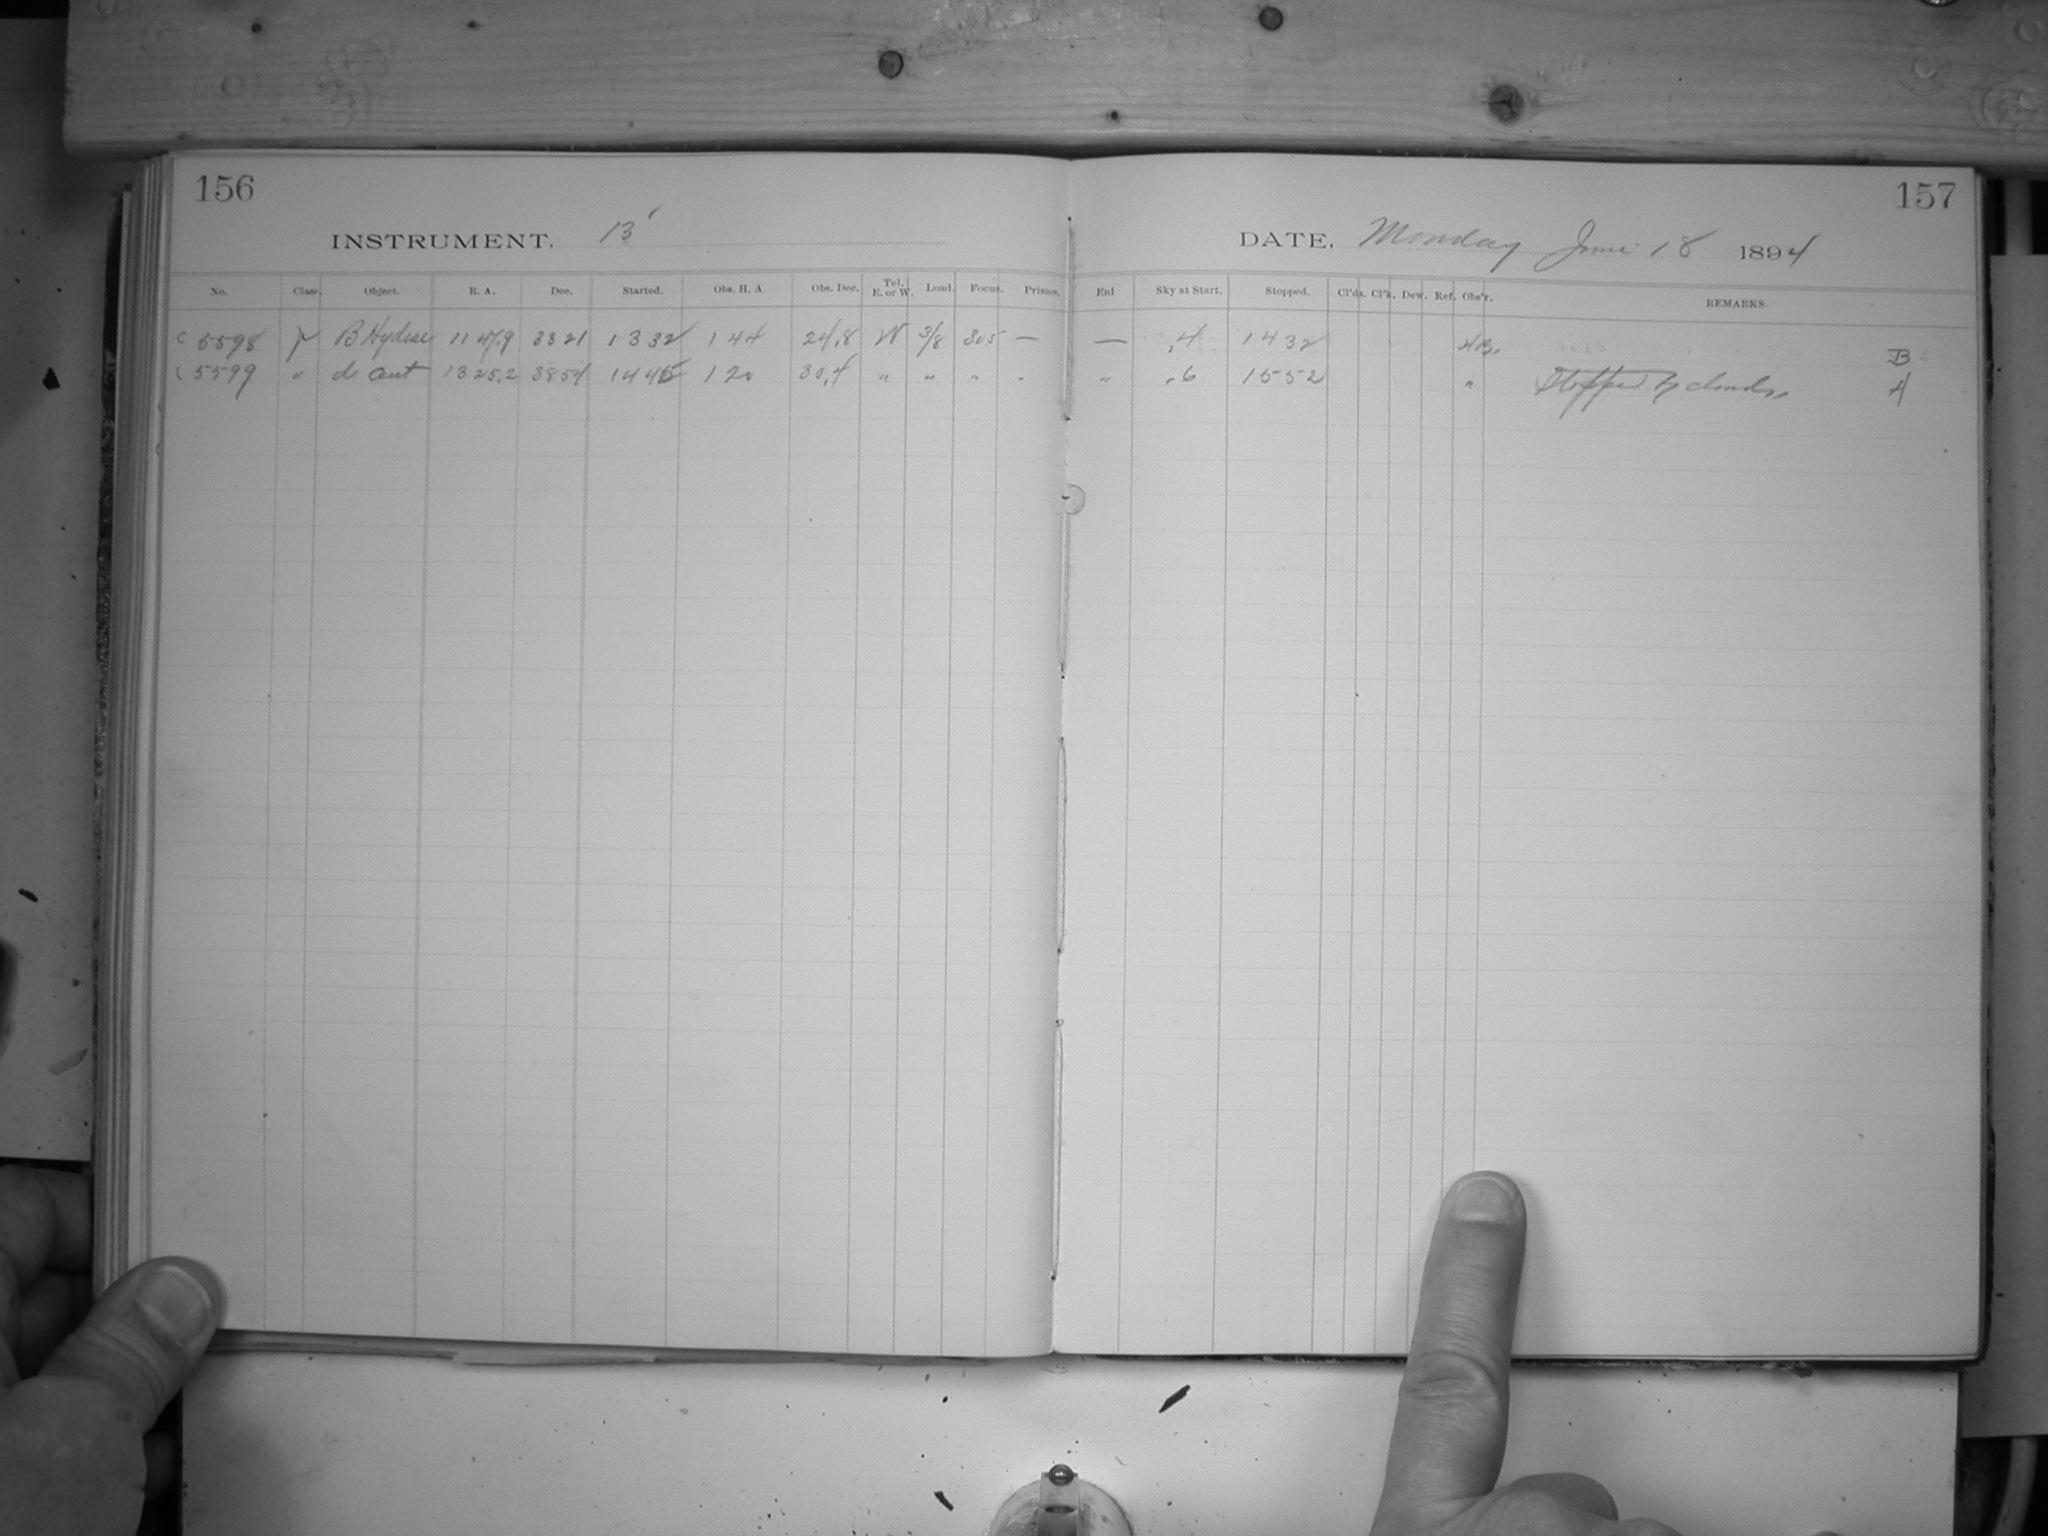 156
157
INSTRUMENT. 13'
DATE, Monday June 18 1894
No. Class. Object. R. A. Dec. Started. Obs. H. A. Obs. Dec. Tel. E. or W. Load. Focus. Prisms. Enl Sky at Start. Stopped. Cl'ds. Cl'k. Dew. Ref. Obs'r. REMARKS.
C 5598 B Hydrae 11 47.9 33 21 13 32 1 44 24.8 W 3/8 305 — — .4 14 32 B
C 5599 " d Cent 13 25.2 38 54 14 45 1 20 30.4 " " " " " .6 15 52 " Stopped by clouds. A